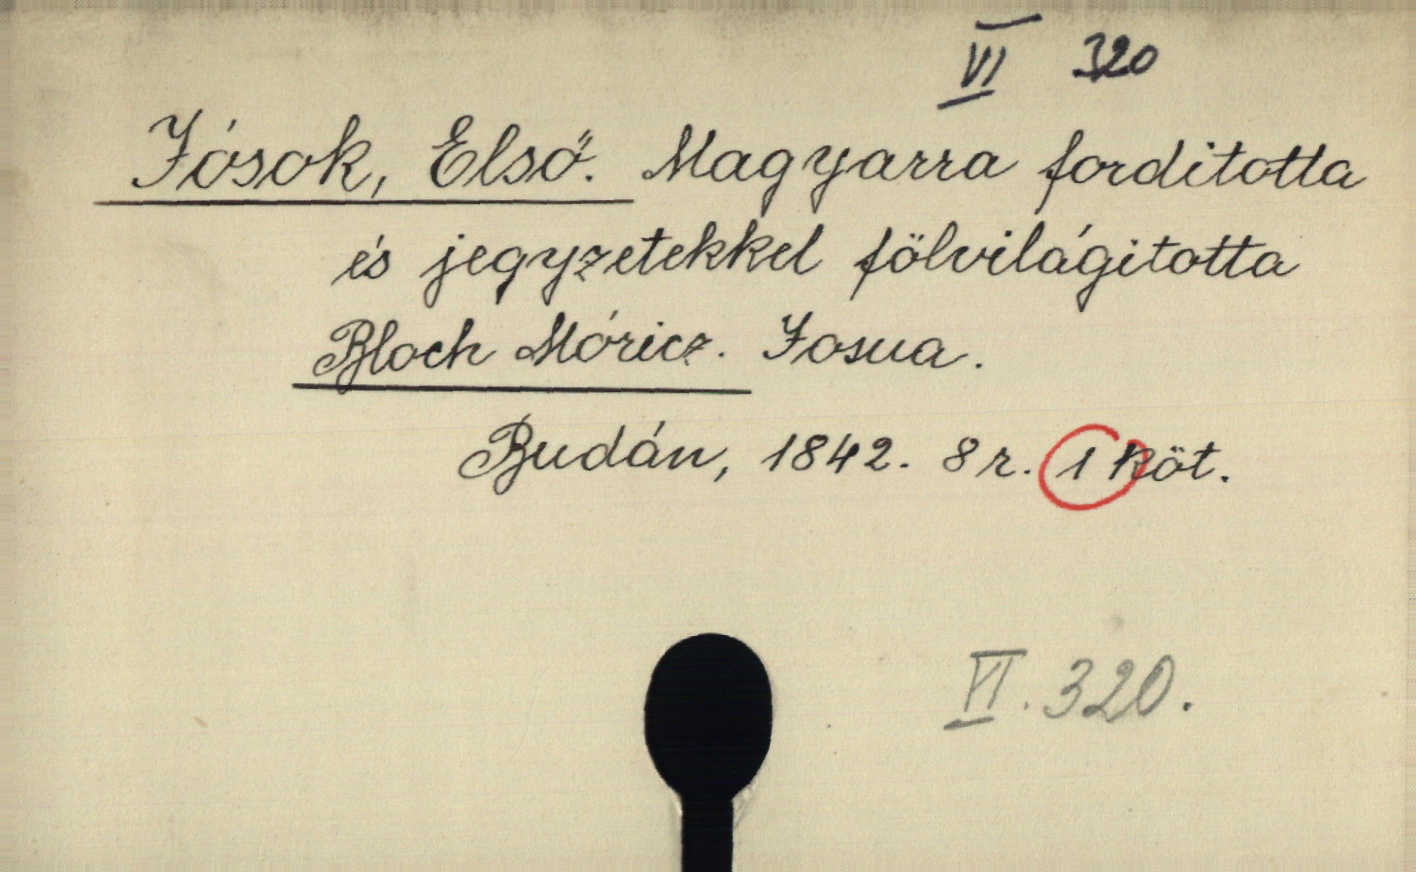 VI 320
Jósok, Első. Magyarra forditotta
és jegyzetekkel fölvilágitotta
Bloch Móricz. Josua.
Budán, 1842. 8 r. 1 köt.
VI. 320.